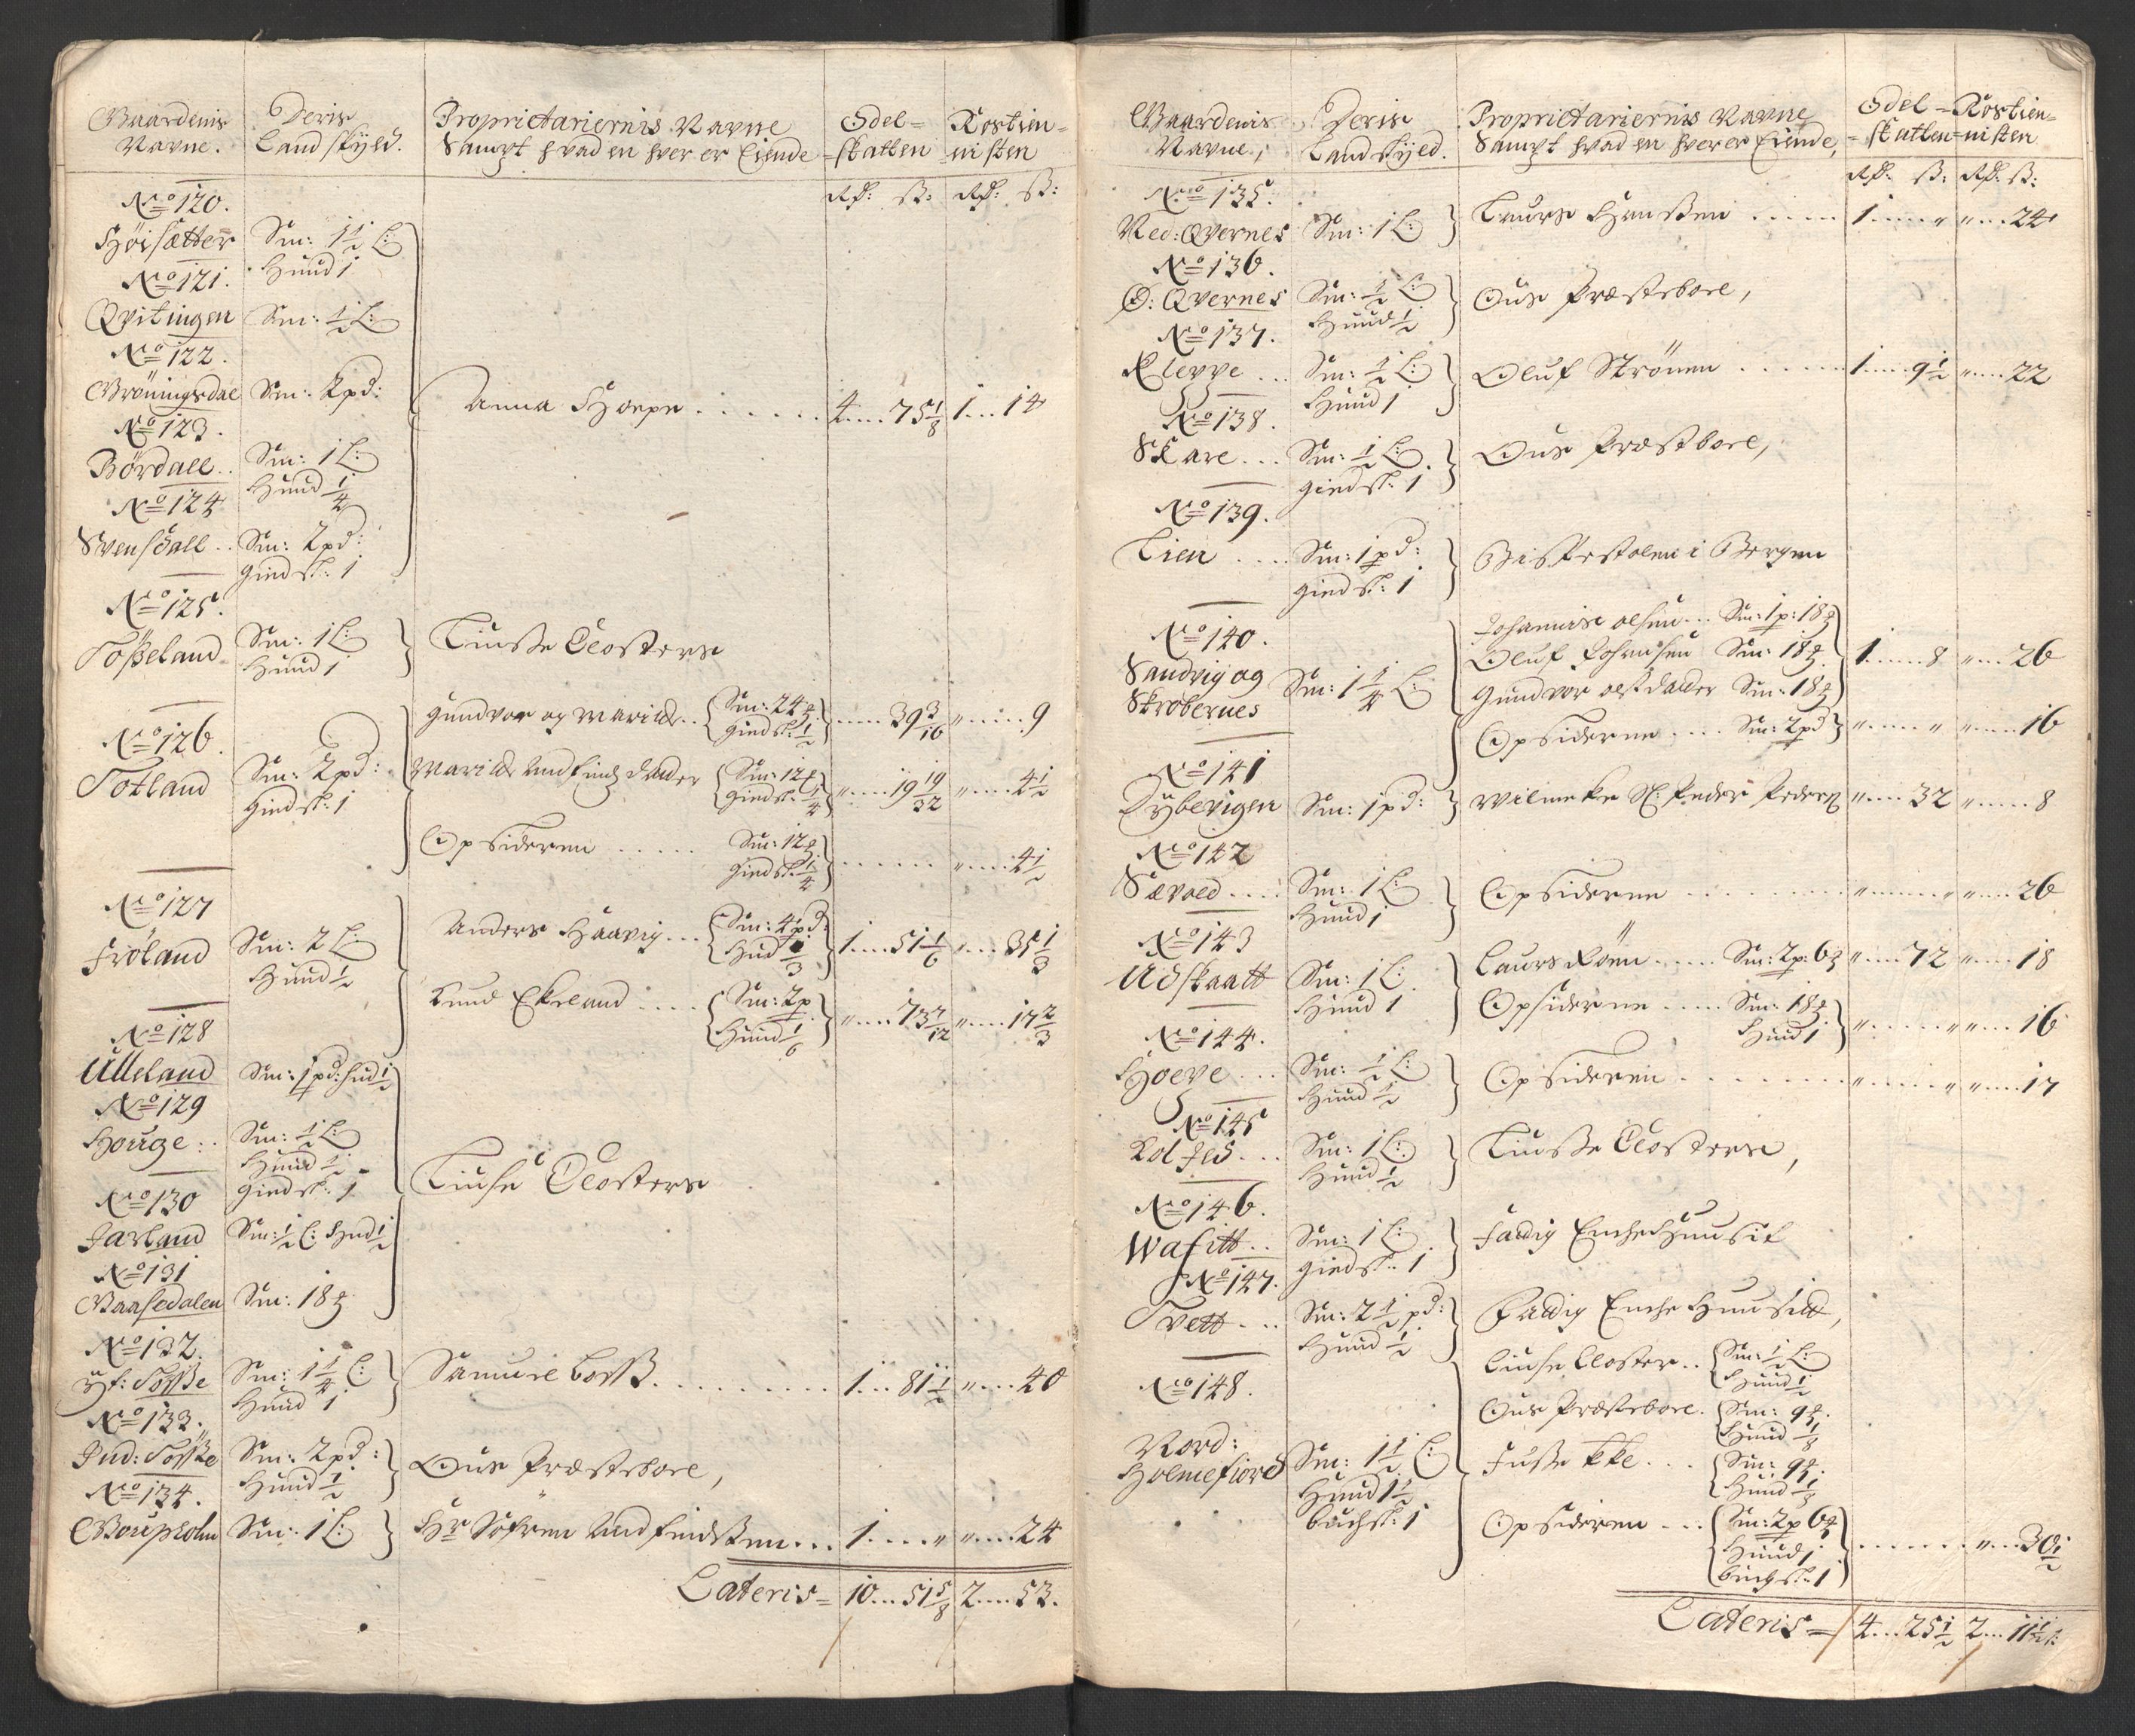 Gaardenis Navne.
Deris Landskyld.
Proprietariernis Navne Sampt hvad en hver er Eiende
Odel=skatten
Rostien=nisten
Rd: ß: Rd: ß:
No 120.
Höisætter Sm: 1½ L: Huud 1
No 121.
Qvitingen Sm: ½ L:
No 122.
Gröningsdal Sm: 2 pd:
Anna Thorpe . . . . . . 4....75⅛ 1...14
No 123.
Bördall.. Sm: 1 L: Huud ¼
No 124
Svensdall.. Sm: 2 pd: Giedsk: 1
No 125.
Tößeland Sm: 1 L: Huud 1
Liusse Closters
No 126.
Totland Sm: 2 pd: Giedsk: 1
Gundvor og Marilde.. Sm: 24 Giedsk: ½ ......39 3/16 "......9
Marilde Andfindsdatter Sm: 12 Giedsk: ¼ "....19 19/32 "....4½
Opsideren ..... Sm: 12 Giedsk: ¼ ....... "....4½
No 127
Fröland Sm: 2 L: Huud ½
Anders Haavig... Sm: 4 pd: Hud ⅓ 1....51⅙ "....35⅓
Knud Ekeland .... Sm: 2 p Huud ⅙ "....73 7/12 "....17⅔
No 128
Ulleland Sm: 1 pd: Hud ½
No 129
Houge.. Sm: ½ L: Huud ½ Giedsk: 1
Liuse Closters
No 130
Jarland Sm: ½ L: Hud ½
No 131
Gaasedalen Sm: 18
No 132.
Yt: Tösse Sm: 1¼ L: Huud 1
Samuel Bortß......... 1...81½ "....40
No 133.
Ind: Tösse Sm: 2 pd: Huud ½
Ous Præstebole,
No 134.
Goupholm Sm: 1 L:
Hr Söfren Andfindssen... 1....." "....24
Lateris= 10...51⅝ 2....53.
Gaardenis Navne,
Deris Landskyld.
Proprietariernis Navne Sampt hvad en hver er Eiende,
Odel=skatten
Rostien=nisten
Rd: ß: Rd: ß:
No 135.
Ned: Qvernes Sm: 1 L:
Laurs Hanssen ..... 1....." "....24
No 136.
Ö: Qvernes Sm: ½ L: Huud ½
Ous Præstebole,
No 137.
Klevve ... Sm: ½ L: Huud 1
Oluf Strönen ...... 1....9½ "....22
No 138.
Skare ... Sm: ½ L: Giedsk: 1
Ous Præstbole,
No 139.
Lien .... Sm: 1 pd: Giedsk: 1
Bispestolen i Bergen
No 140.
Sandvig og Skrobernes Sm: 1¼ L:
Johannis Olsen... Sm: 1 p: 18
Oluf Johansen Sm: 18 1......8 "....26
Gundvor Olsdatter Sm: 18
Opsiderne .... Sm: 2 pd "......" "....16
No 141
Dybevigen Sm: 1 pd:
Wilmeke Sl: Peder Peders "....32 ".....8
No 142
Sævold.... Sm: 1 L: Huud 1
Opsideren ......... "......" "....26
No 143
Udskaatt Sm: 1 L: Huud 1
Laurs Röen..... Sm: 2 p: 6 "....72 "....18
Opsiderne ..... Sm: 18 Huud 1 "......" "....16
No 144.
Hoeve ... Sm: ½ L: Huud ½
Opsideren ........ "......" "....17
No 145
Kolfed... Sm: 1 L: Huud ½
Liusse Closters,
No 146.
Wasitt.. Sm: 1 L: Giedsk: 1
Fattig Encke Huusit
No 147.
Tvett... Sm: 2½ pd: Huud ½
Fattig Encke Huusitt,
No 148.
Nord: Holmefiord Sm: 1½ L: Huud 1½ Buchsk: 1
Liuse Closter.. Sm: ½ L: Huud ½
Ous Præstebole. Sm: 9 Huud ⅛
Fusse kke... Sm: 9 Huud ⅓
Opsideren ... Sm: 2 p 6 Huud 1 Buchsk: 1 ....... "...30½
Lateris= 4...25½ 2...11½